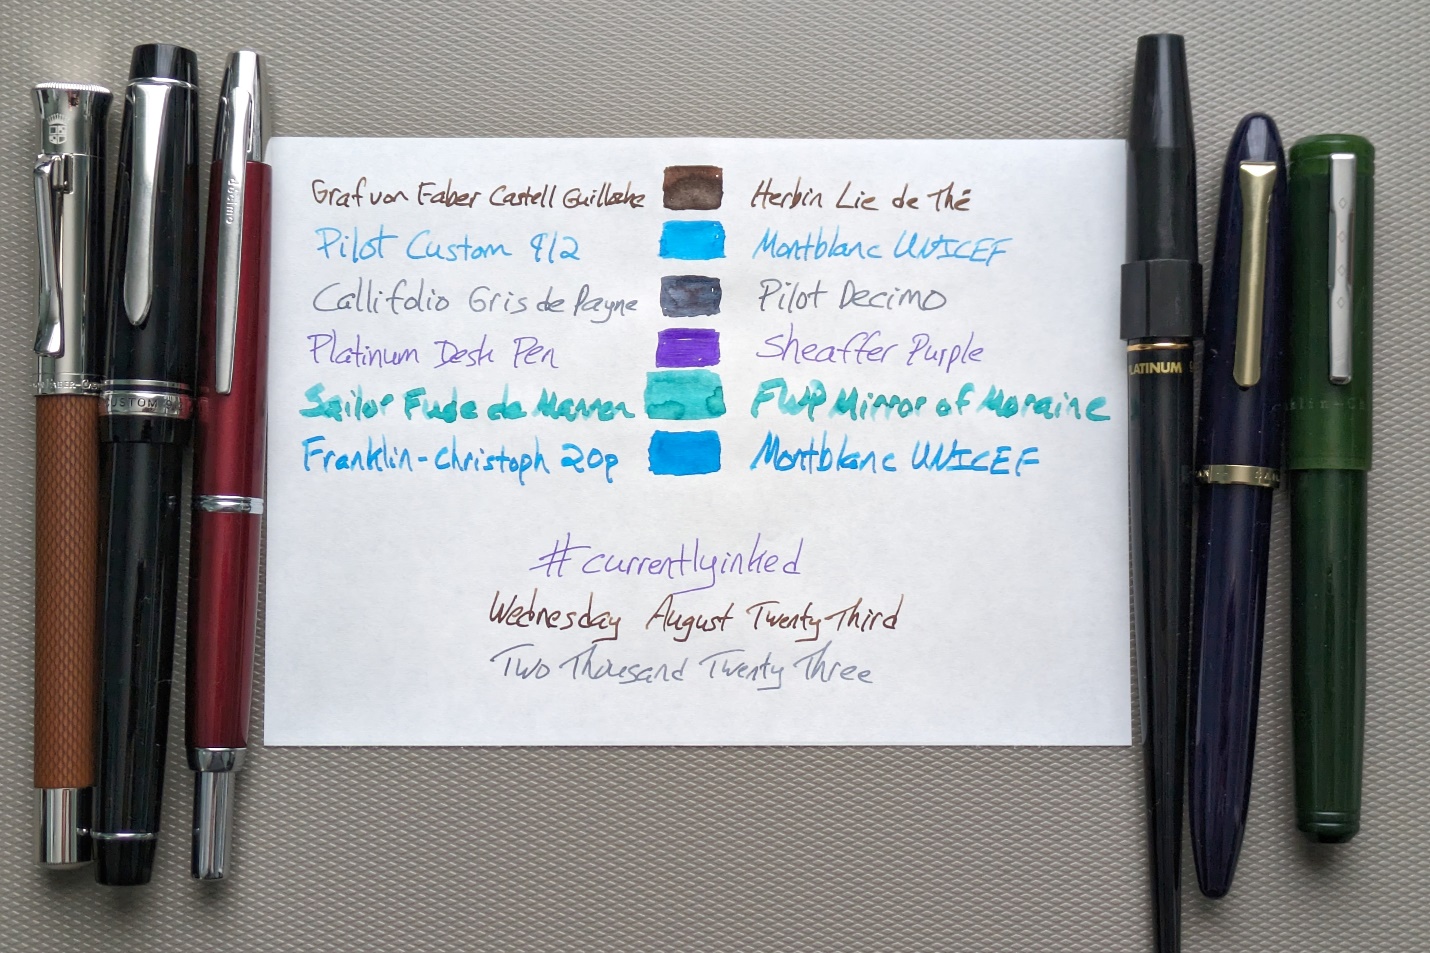 Graf von Faber Castell Guilloche Herbin Lie de Thé
Pilot Custom 912 Montblanc UNICEF
Callifolio Gris de Payne Pilot Decimo
Platinum Desk Pen Sheaffer Purple
Sailor Fude de Mannen FWP Mirror of Moraine
Franklin-Christoph 20p Montblanc UNICEF
#currentlyinked
Wednesday August Twenty-Third
Two Thousand Twenty Three
CUSTOM
decimo
PLATINUM